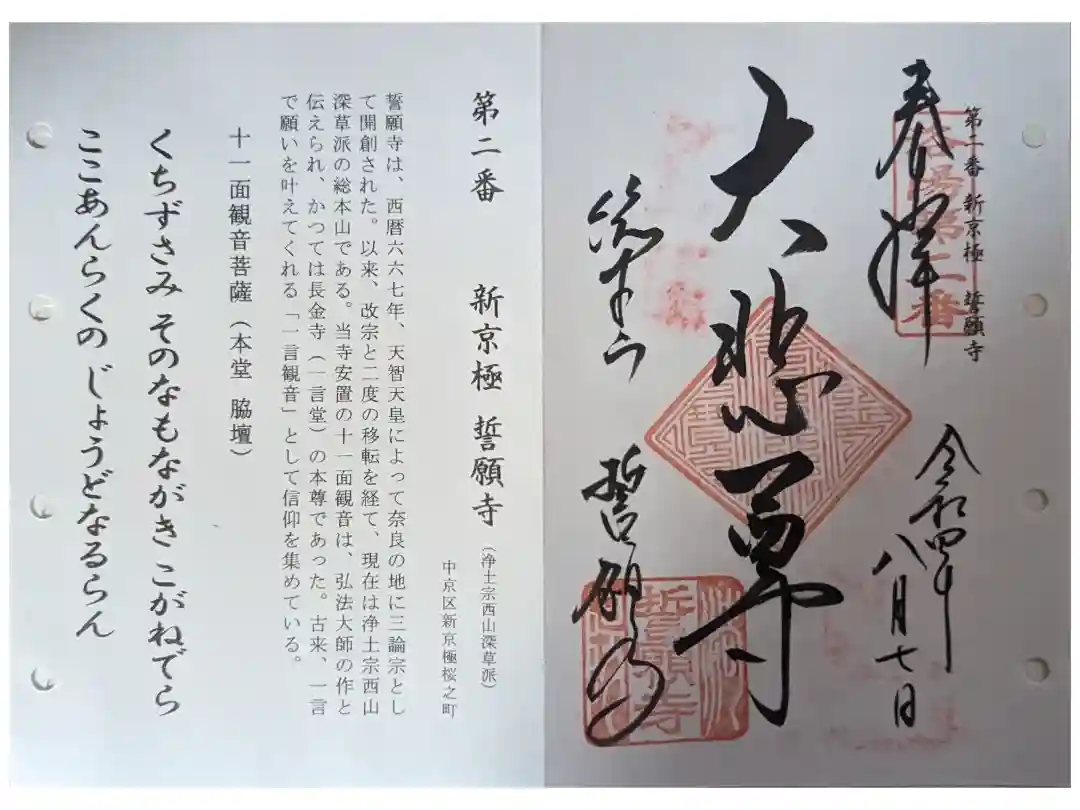 第二番 新京極 誓願寺
奉拝
洛陽第二番
令和四年八月七日
大悲尊
誓願寺
第二番 新京極 誓願寺
(浄土宗西山深草派)
中京区新京極桜之町
誓願寺は、西暦六六七年、天智天皇によって奈良の地に三論宗とし
て開創された。以来、改宗と二度の移転を経て、現在は浄土宗西山
深草派の総本山である。当寺安置の十一面観音は、弘法大師の作と
伝えられ、かつては長金寺(一言堂)の本尊であった。古来、一言
で願いを叶えてくれる「一言観音」として信仰を集めている。
十一面観音菩薩(本堂 脇壇)
くちずさみ そのなもながき こがねでら
ここあんらくの じょうどなるらん